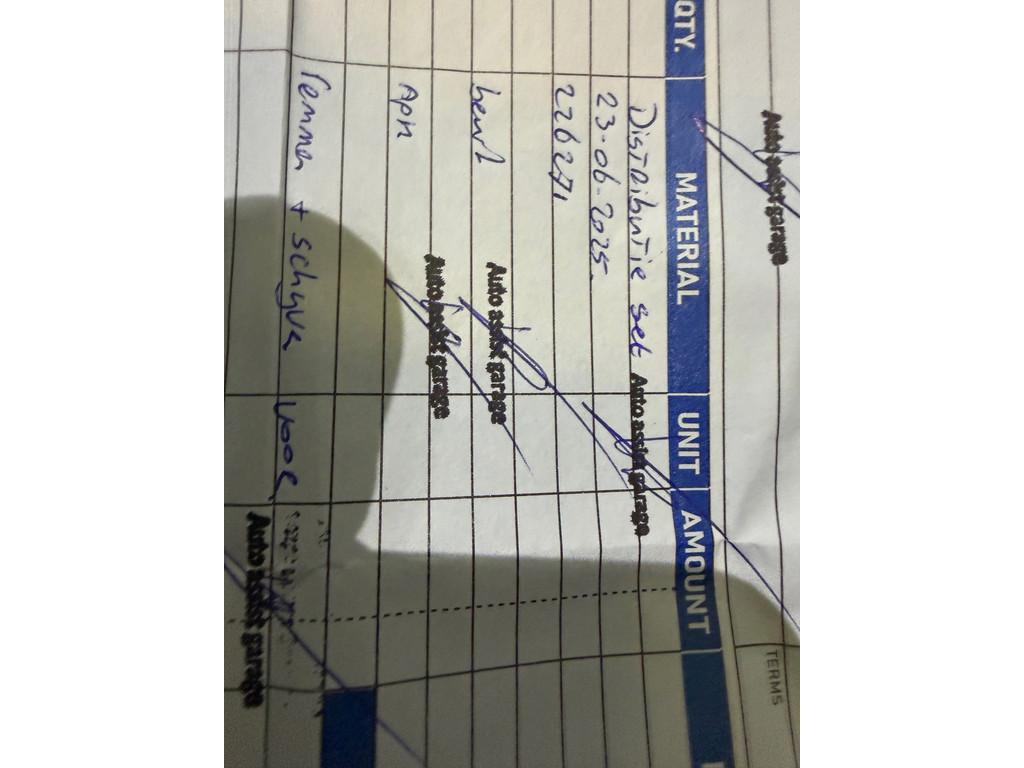 Auto assist garage
TERMS
QTY. MATERIAL UNIT AMOUNT
Distributie set Auto assist garage
23-06-2025.
226271
beurt Auto assist garage
APK Auto assist garage
remmen + schyva voor
Auto assist garage